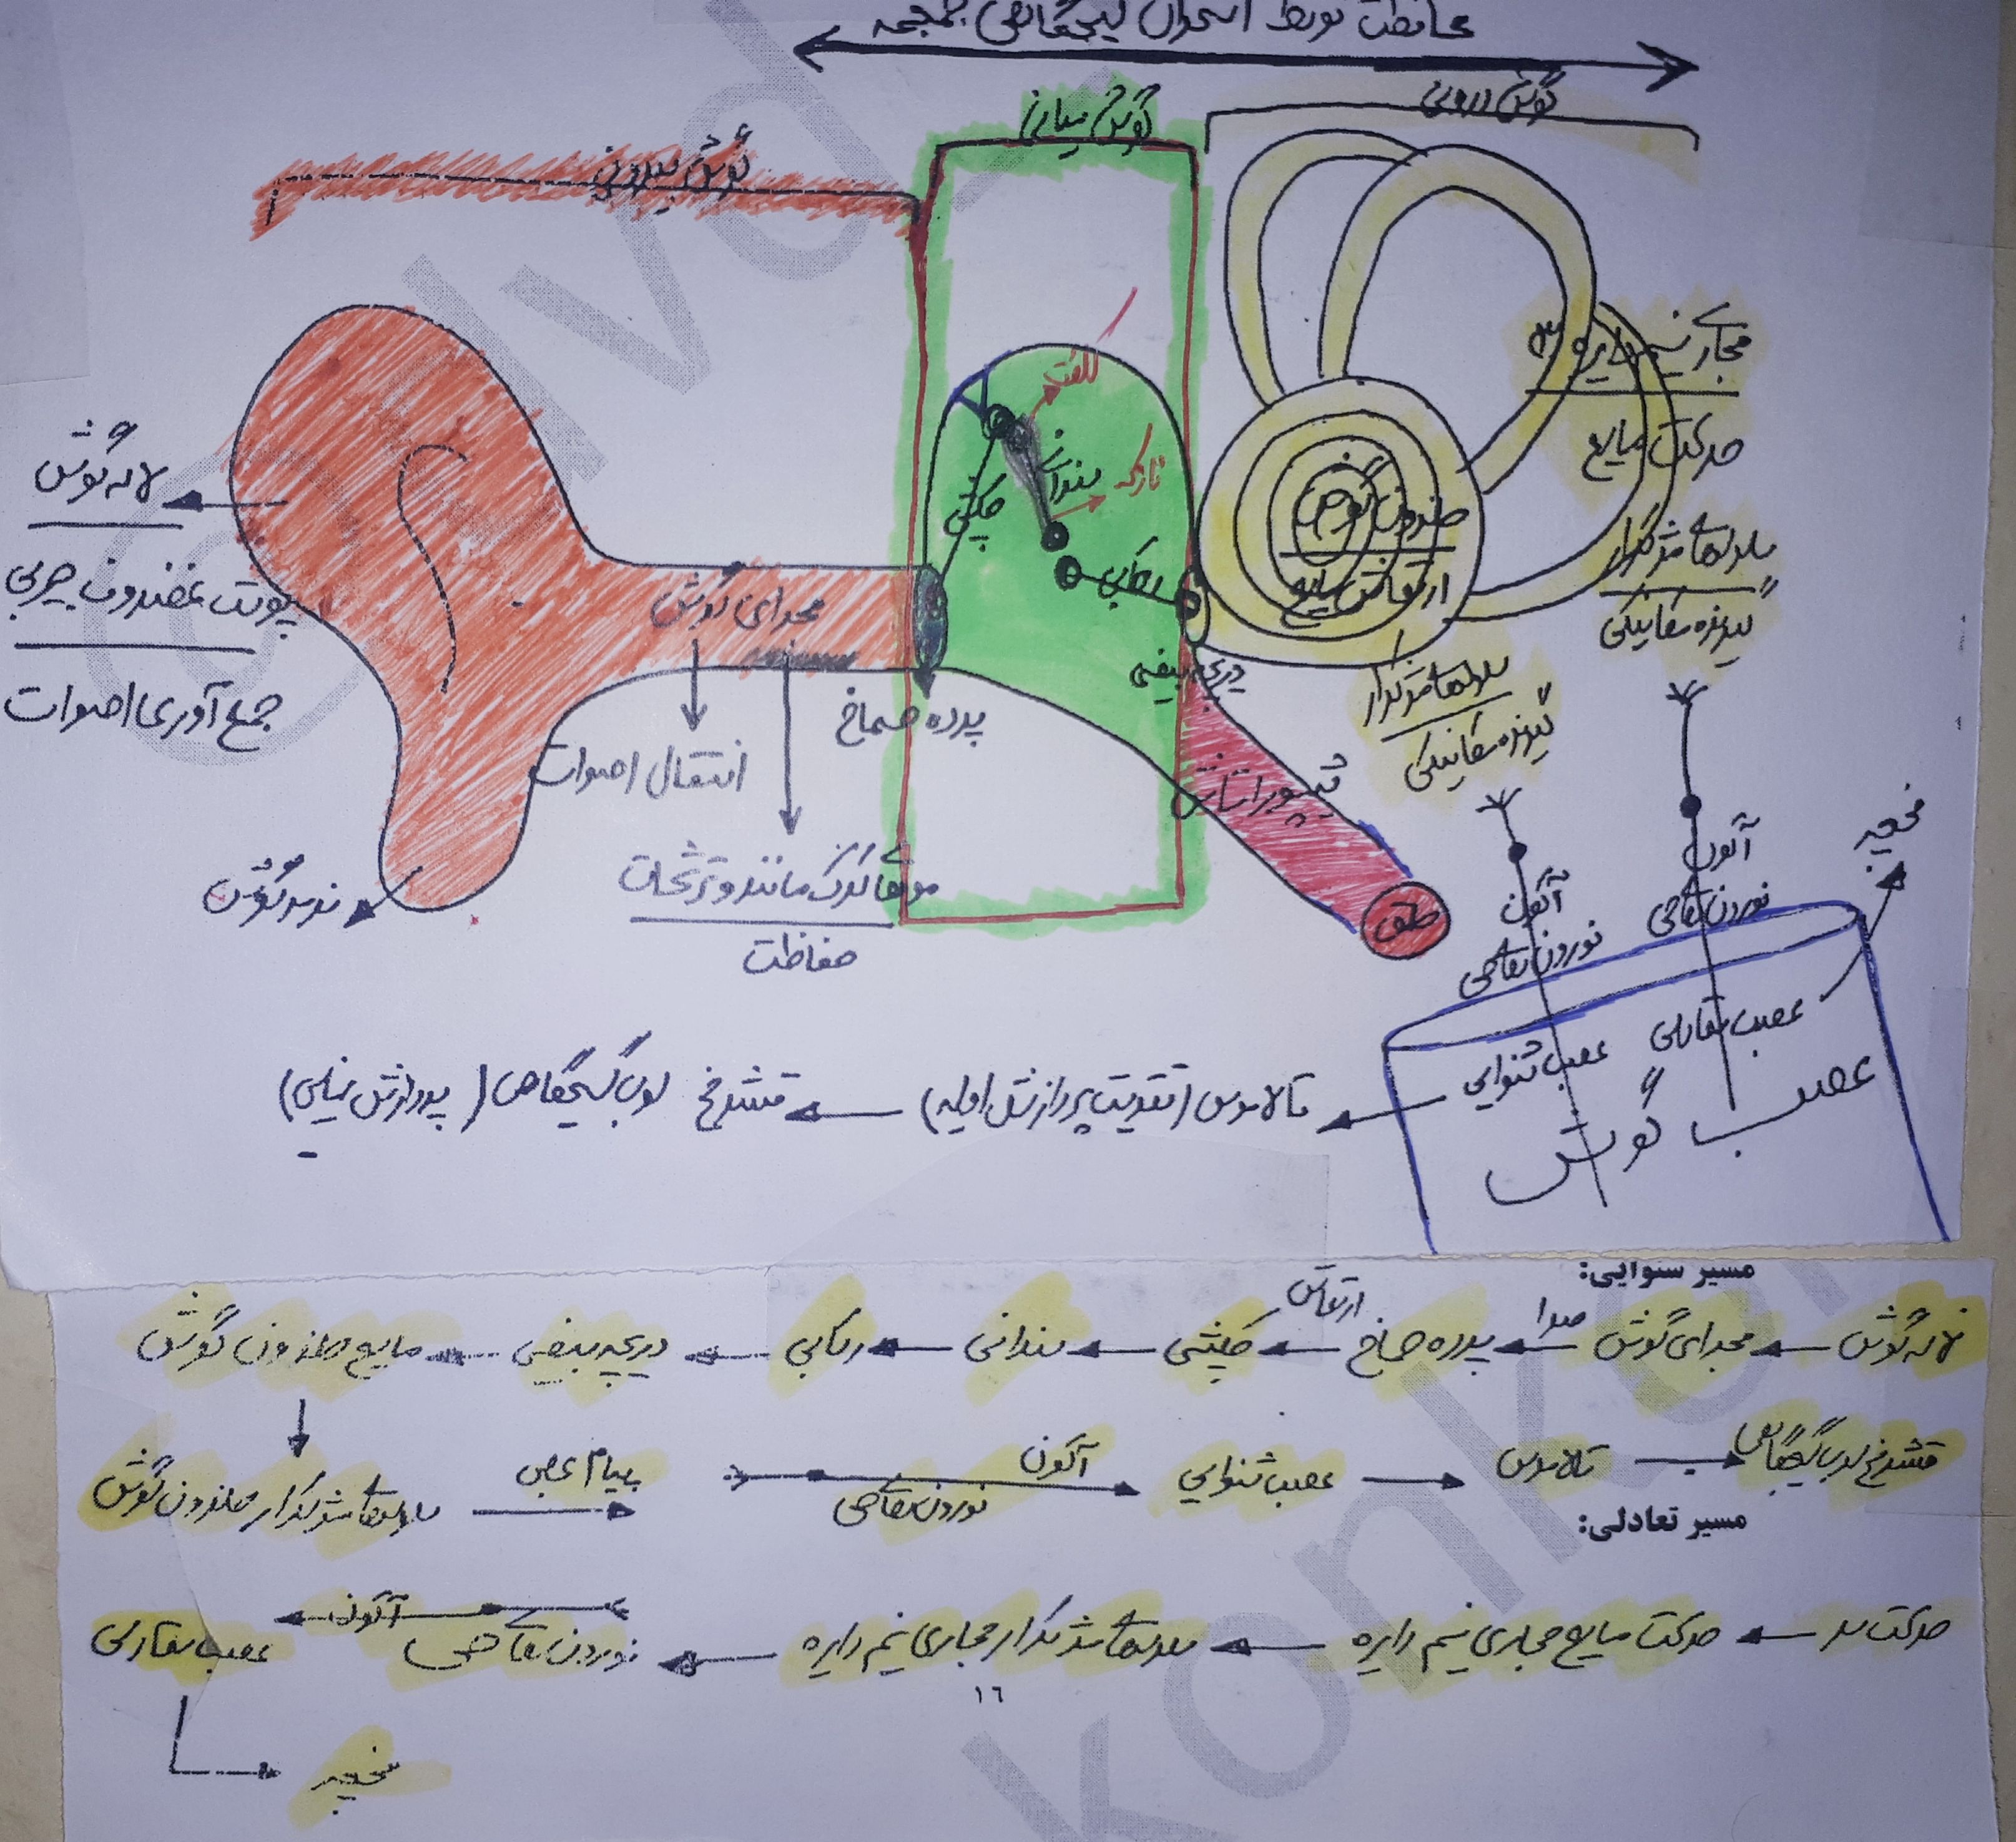 حفاظت توسط استخوان گیجگاهی جمجمه
گوش درونی
گوش میانی
گوش بیرونی
مجاری نیم دایره ۳
حرکت مایع
سلولهای مژکدار
گیرنده مکانیکی
کلفت
نازک
سندانی
چکشی
رکابی
حلزون گوش
ارتعاش مایع
سلولهای مژکدار
گیرنده مکانیکی
لاله گوش
پوست غضروف چربی
جمع آوری اصوات
مجرای گوش
انتقال اصوات
پرده صماخ
دریچه بیضی
شیپور استاش
حلق
موهای کرک مانند و ترشحات
حفاظت
نرمه گوش
آکسون
نورون حسی
آکسون
نورون حسی
مخچه
عصب تعادلی
عصب شنوایی
عصب گوش
تالاموس (تقویت پردازش اولیه)
قشر مخ لوب گیجگاهی (پردازش نهایی)
مسیر شنوایی:
لاله گوش ← مجرای گوش ← صدا پرده صماخ ← ارتعاش چکشی ← سندانی ← رکابی ← دریچه بیضی ← مایع حلزون گوش
سلولهای مژکدار حلزون گوش → پیام عصبی
آکسون
نورون حسی
عصب شنوایی → تالاموس → قشر مخ لوب گیجگاهی
مسیر تعادلی:
حرکت سر ← حرکت مایع مجاری نیم دایره ← سلولهای مژکدار مجاری نیم دایره ← نورون حسی آکسون ← عصب تعادلی
مخچه
۱۶
konkor